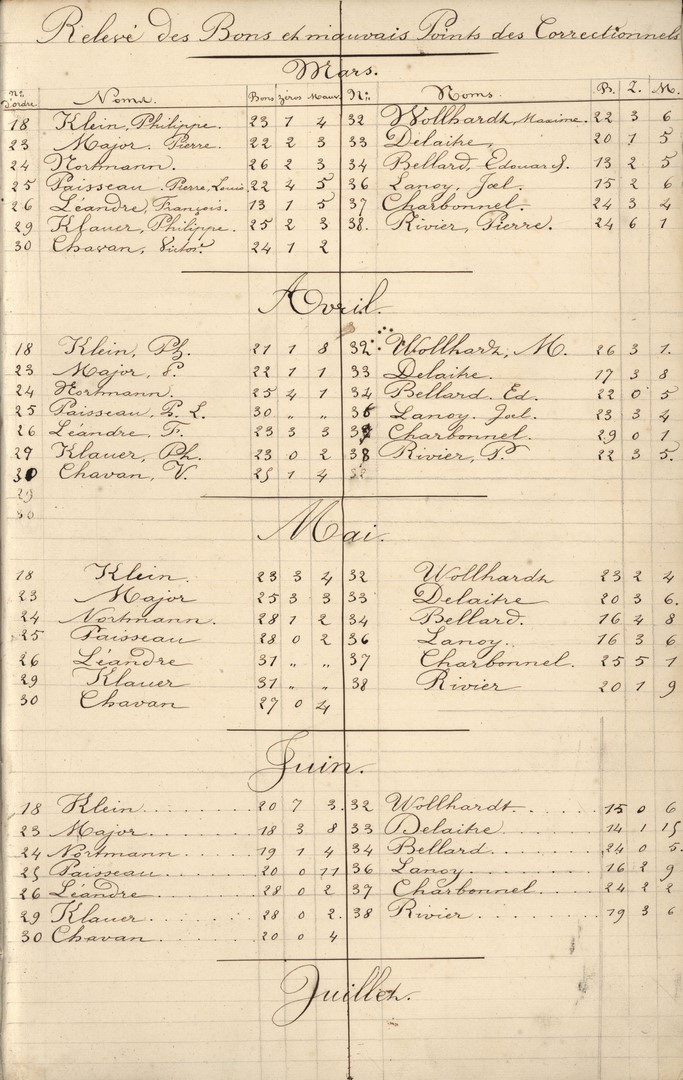 Relevé des Bons et mauvais Points des Correctionnels
Mars.
Nos d'ordre Noms. Bons Zéros Mauv. No: Noms. B. Z. M.
18 Klein, Philippe. 23 1 4 32 Wollhardt, Maxime. 22 3 6
23 Major. Pierre. 22 2 3 33 Delaitre, 20 1 5
24 Nortmann. 26 2 3 34 Bellard, Edouard. 13 2 5
25 Paisseau. Pierre, Louis, 22 4 5 36 Lanoy, Joel. 15 2 6
26 Léandre, François. 13 1 5 37 Charbonnel. 24 3 4
29 Klauer, Philippe. 25 2 3 38. Rivier, Pierre. 24 6 1
30 Chavan, Victor. 24 1 2
Avril.
18 Klein, Ph. 21 1 8 32 Wollhardt, M. 26 3 1.
23 Major, P. 22 1 1 33 Delaitre. 17 3 8
24 Nortmann. 25 4 1 34 Bellard. Ed. 22 0 5
25 Paisseau. P. L. 30 " " 36 Lanoy. Joel. 23 3 4
26 Léandre F. 23 3 3 37 Charbonnel. 29 0 1
29 Klauer, Ph. 23 0 2 38 Rivier, P. 22 3 5.
30 Chavan, V. 25 1 4
29
30
Mai.
18 Klein. 23 3 4 32 Wollhardt 23 2 4
23 Major 25 3 3 33 Delaitre 20 3 6.
24 Nortmann. 28 1 2 34 Bellard. 16 4 8
25 Paisseau 28 0 2 36 Lanoy. 16 3 6
26 Léandre 31 " " 37 Charbonnel. 25 5 1
29 Klauer 31 " " 38 Rivier 20 1 9
30 Chavan 27 0 4
Juin.
18 Klein.......... 20 7 3. 32 Wollhardt......... 15 0 6
23 Major.......... 18 3 8 33 Delaitre.......... 14 1 15
24 Nortmann....... 19 1 4 34 Bellard.......... 24 0 5.
25 Paisseau....... 20 0 11 36 Lanoy.......... 16 2 9
26 Léandre........ 28 0 2 37 Charbonnel....... 24 2 2
29 Klauer......... 28 0 2. 38 Rivier.......... 19 3 6
30 Chavan......... 20 0 4
Juillet.